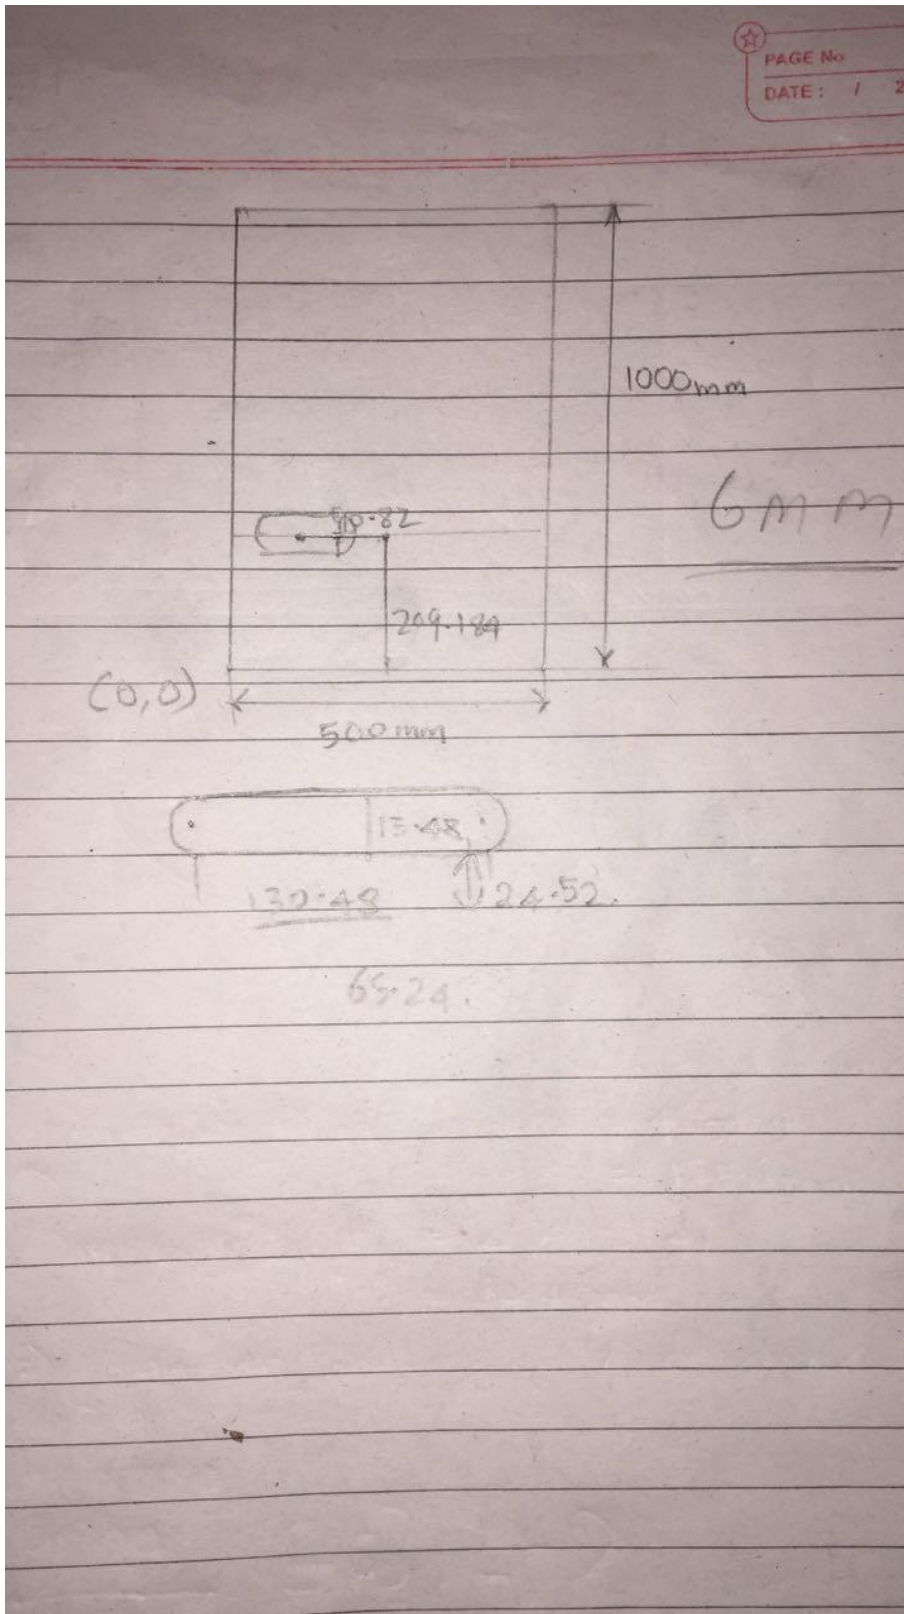 PAGE No
DATE : / 2
1000mm
6mm
209.184
(0,0)
500mm
13.48
130.48
24.52.
65.24.